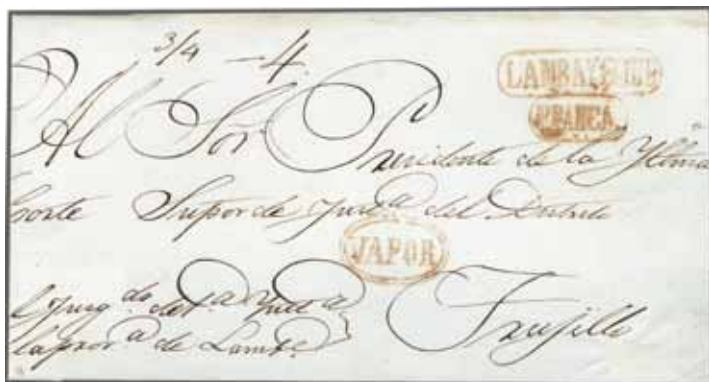 3/4 - 4.
LAMBAYEQUE
FRANCA
Al Sor. Presidente de la Yltma
Corte Supor de Justa del Distrito
VAPOR
el Juzgdo de 1a Ynsta
Trujillo
la prova de Lambe